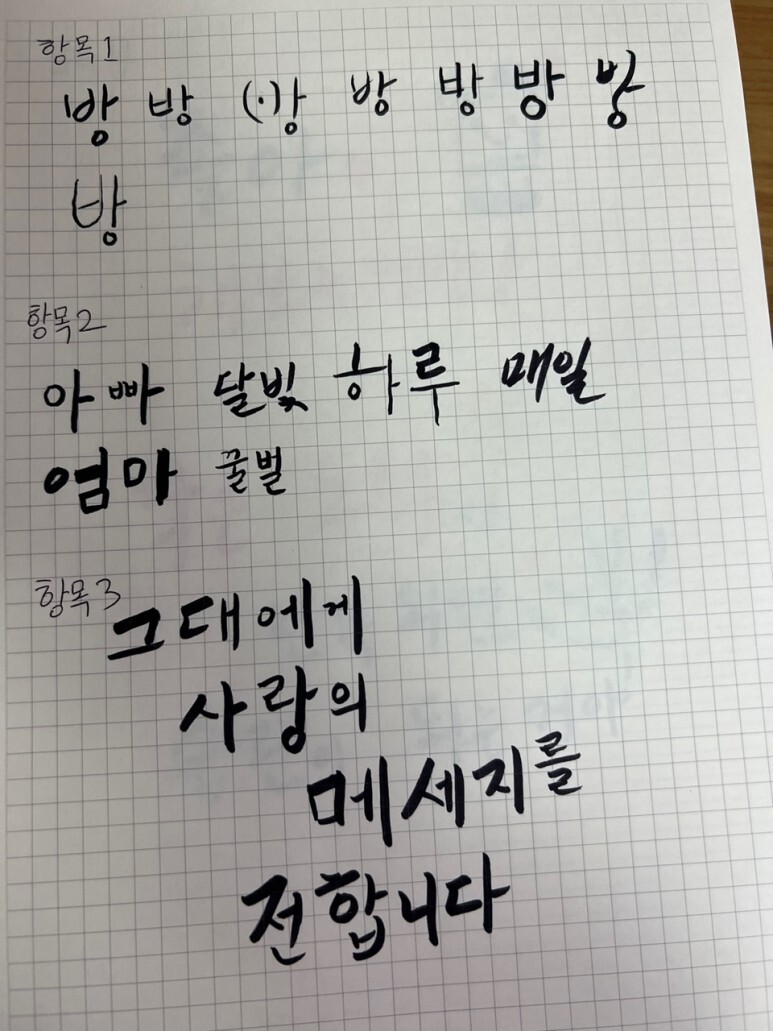 항목1
방 방 (·)강 방 방 방 방
방
항목2
아빠 달빛 하루 매일
엄마 꿀벌
항목3
그대에게
사랑의
메세지를
전합니다